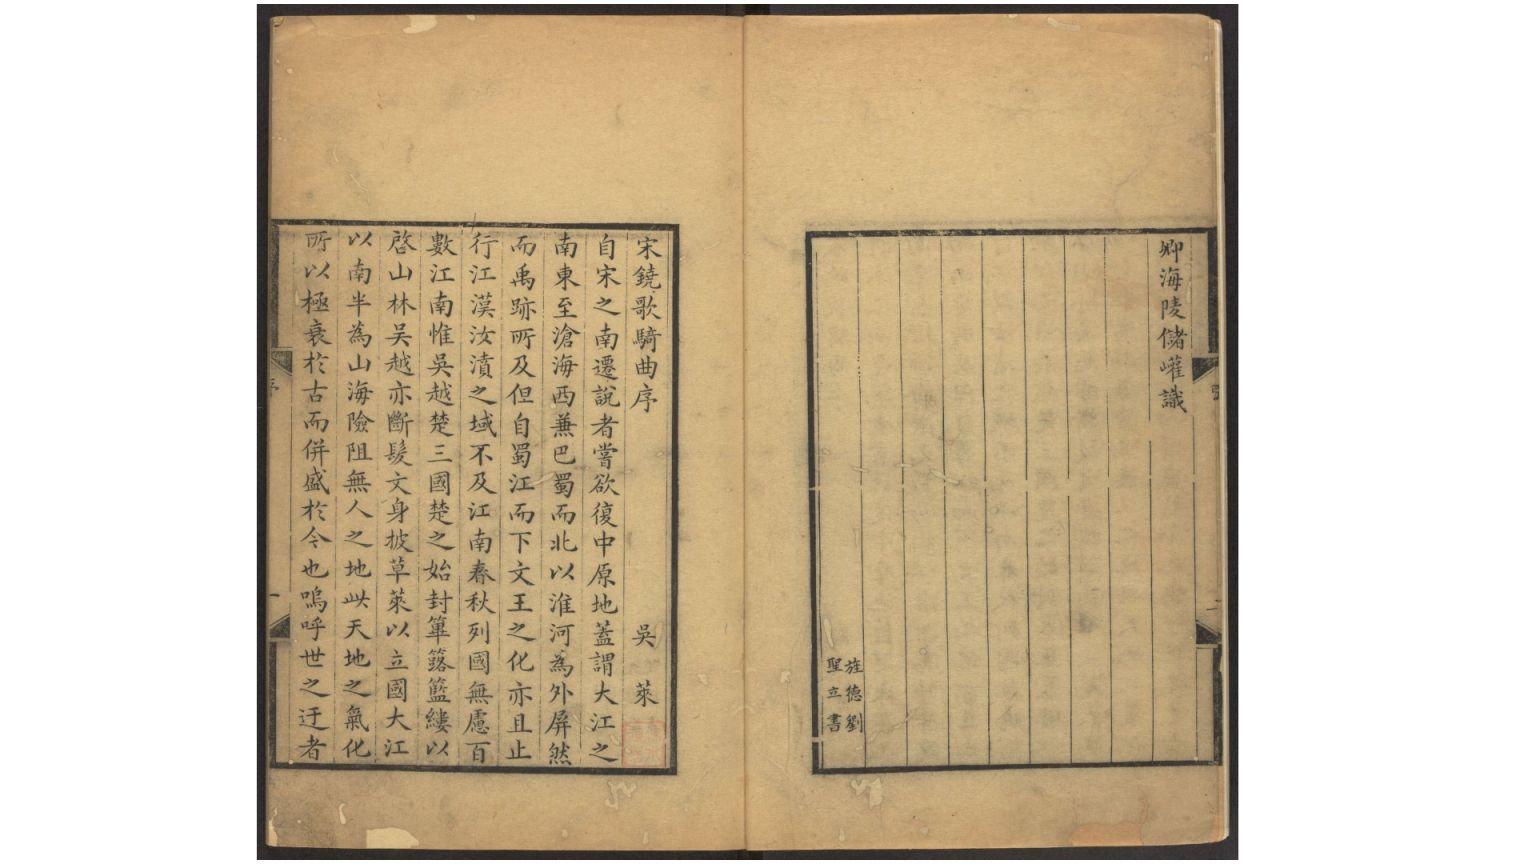 卿海陵儲巏識
旌德劉
聖立書
宋鐃歌騎曲序
吳萊
自宋之南遷說者嘗欲復中原地蓋謂大江之
南東至滄海西蒹巴蜀而北以淮河為外屏然
而禹跡所及但自蜀江而下文王之化亦且止
行江漢汝濆之域不及江南春秋列國無慮百
數江南惟吳越楚三國楚之始封篳簬籃縷以
啓山林吳越亦斷髮文身披草萊以立國大江
以南半為山海險阻無人之地此天地之氣化
所以極衰於古而併盛於今也嗚呼世之迂者
序
一